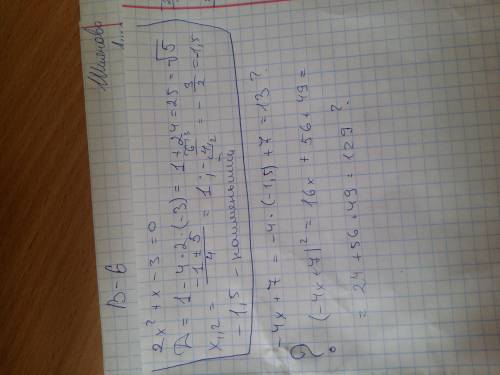 В-6
2x² + x - 3 = 0
Д = 1 - 4 · 2 · (-3) = 1 + 24 = 25 = √5
x₁,₂ = (-1 ± 5)/4 = 1 ; -6/4 = -3/2 = -1,5
-1,5 - наименьший
-4x + 7 = -4 · (-1,5) + 7 = 13 ?
(-4x + 7)² = 16x + 56 + 49 =
= 24 + 56 + 49 = 129 ?
?